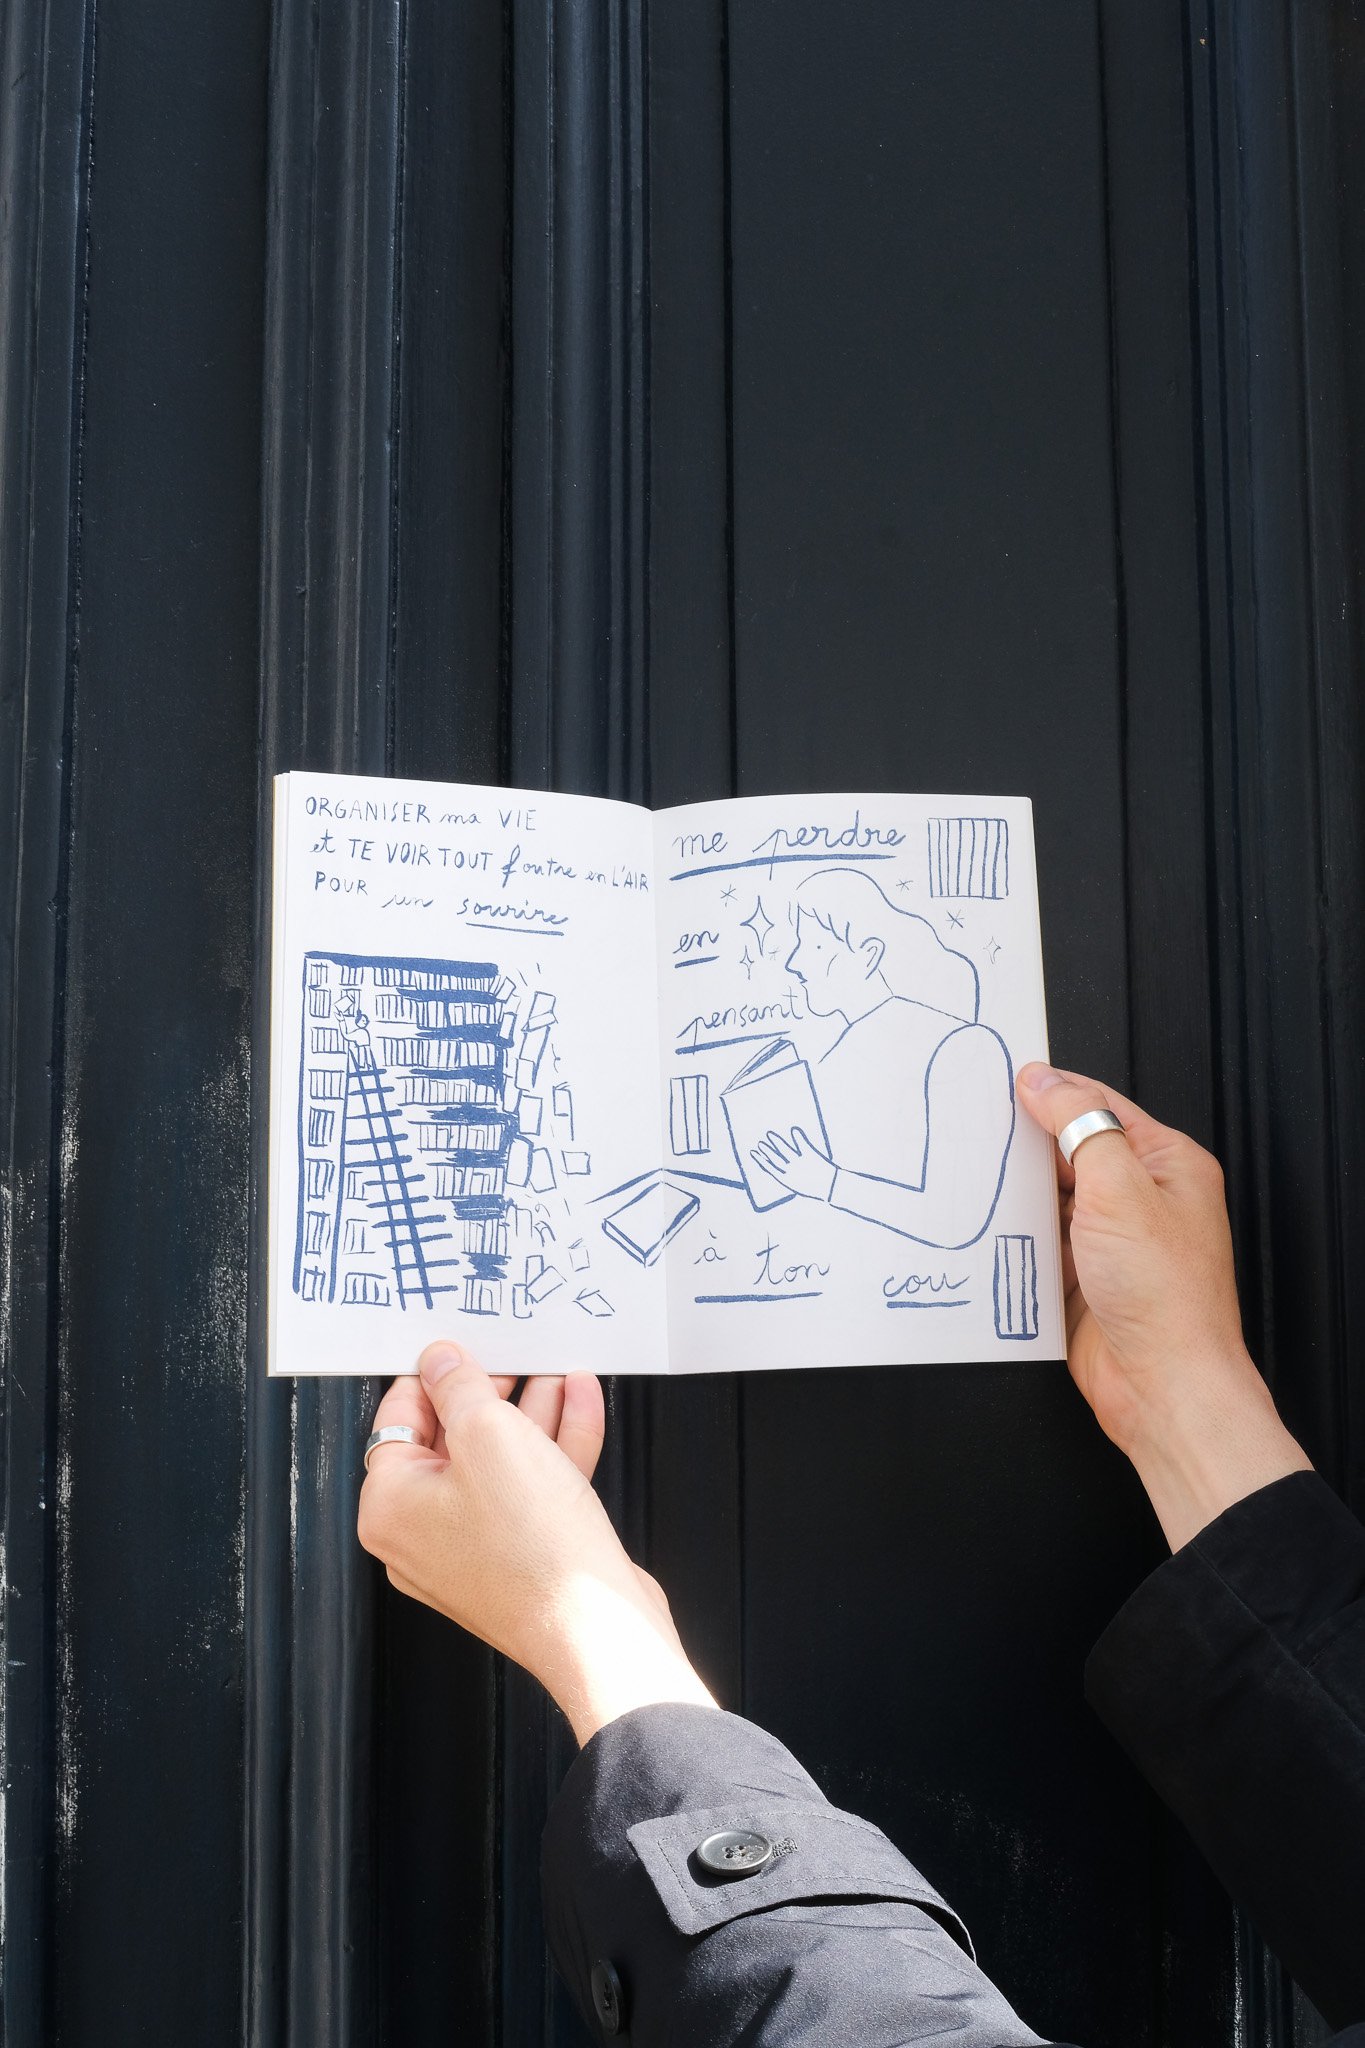 ORGANISER ma VIE
et TE VOIR TOUT foutre en L'AIR
POUR un sourire
me perdre
en
pensant
à ton cou